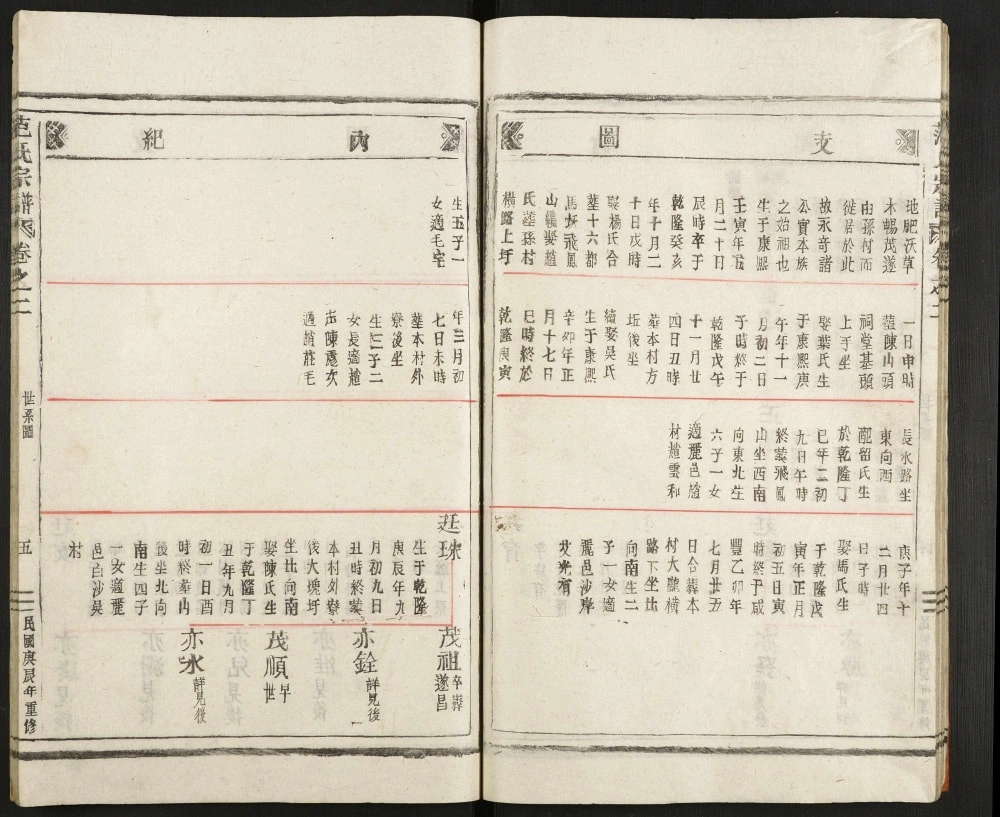 支
圖
地肥沃草
木暢茂遂
由孫村而
徙居於此
故永奇諸
公實本族
之始祖也
生于康熙
壬寅年五
月二十日
辰時卒于
乾隆癸亥
年十月二
十日戌時
娶楊氏合
墓十六都
馬坵飛鳳
山繼娶趙
氏墓孫村
橫路上圩
一日申時
墓陳山頭
祠堂基頭
上手坐
娶葉氏生
于康熙庚
午年十一
月初二日
子時終于
乾隆戊午
十一月廿
四日丑時
葬本村方
坵後坐
續娶吳氏
生于康熙
辛卯年正
月十七日
巳時終於
乾隆庚寅
長水路坐
東向西
配留氏生
於乾隆丁
巳年二初
九日午時
終墓飛鳳
山坐西南
向東北生
六子一女
適麗邑趙
村趙雲和
庚子年十
二月廿四
日子時
娶馮氏生
于乾隆戊
寅年正月
初五日寅
時終于咸
豐乙卯年
七月廿五
日合葬本
村大隴橫
路下坐北
向南生二
子一女適
麗邑沙岸
艾光有
內
紀
生五子一
女適毛宅
年三月初
七日未時
墓本村外
寮後坐
生二子二
女長適趙
庄陳處次
適趙莊毛
廷珠
生于乾隆
庚辰年九
月初九日
丑時終墓
本村外寮
後大塊圩
坐北向南
娶陳氏生
于乾隆丁
丑年九月
初一日酉
時終墓山
後坐北向
南生四子
一女適麗
邑白沙吳
村
茂祖 卒葬遂昌
亦銓 詳見後
茂順 早世
亦水 詳見後
范氏宗譜 卷之二
世系圖
五
民國庚辰年重修